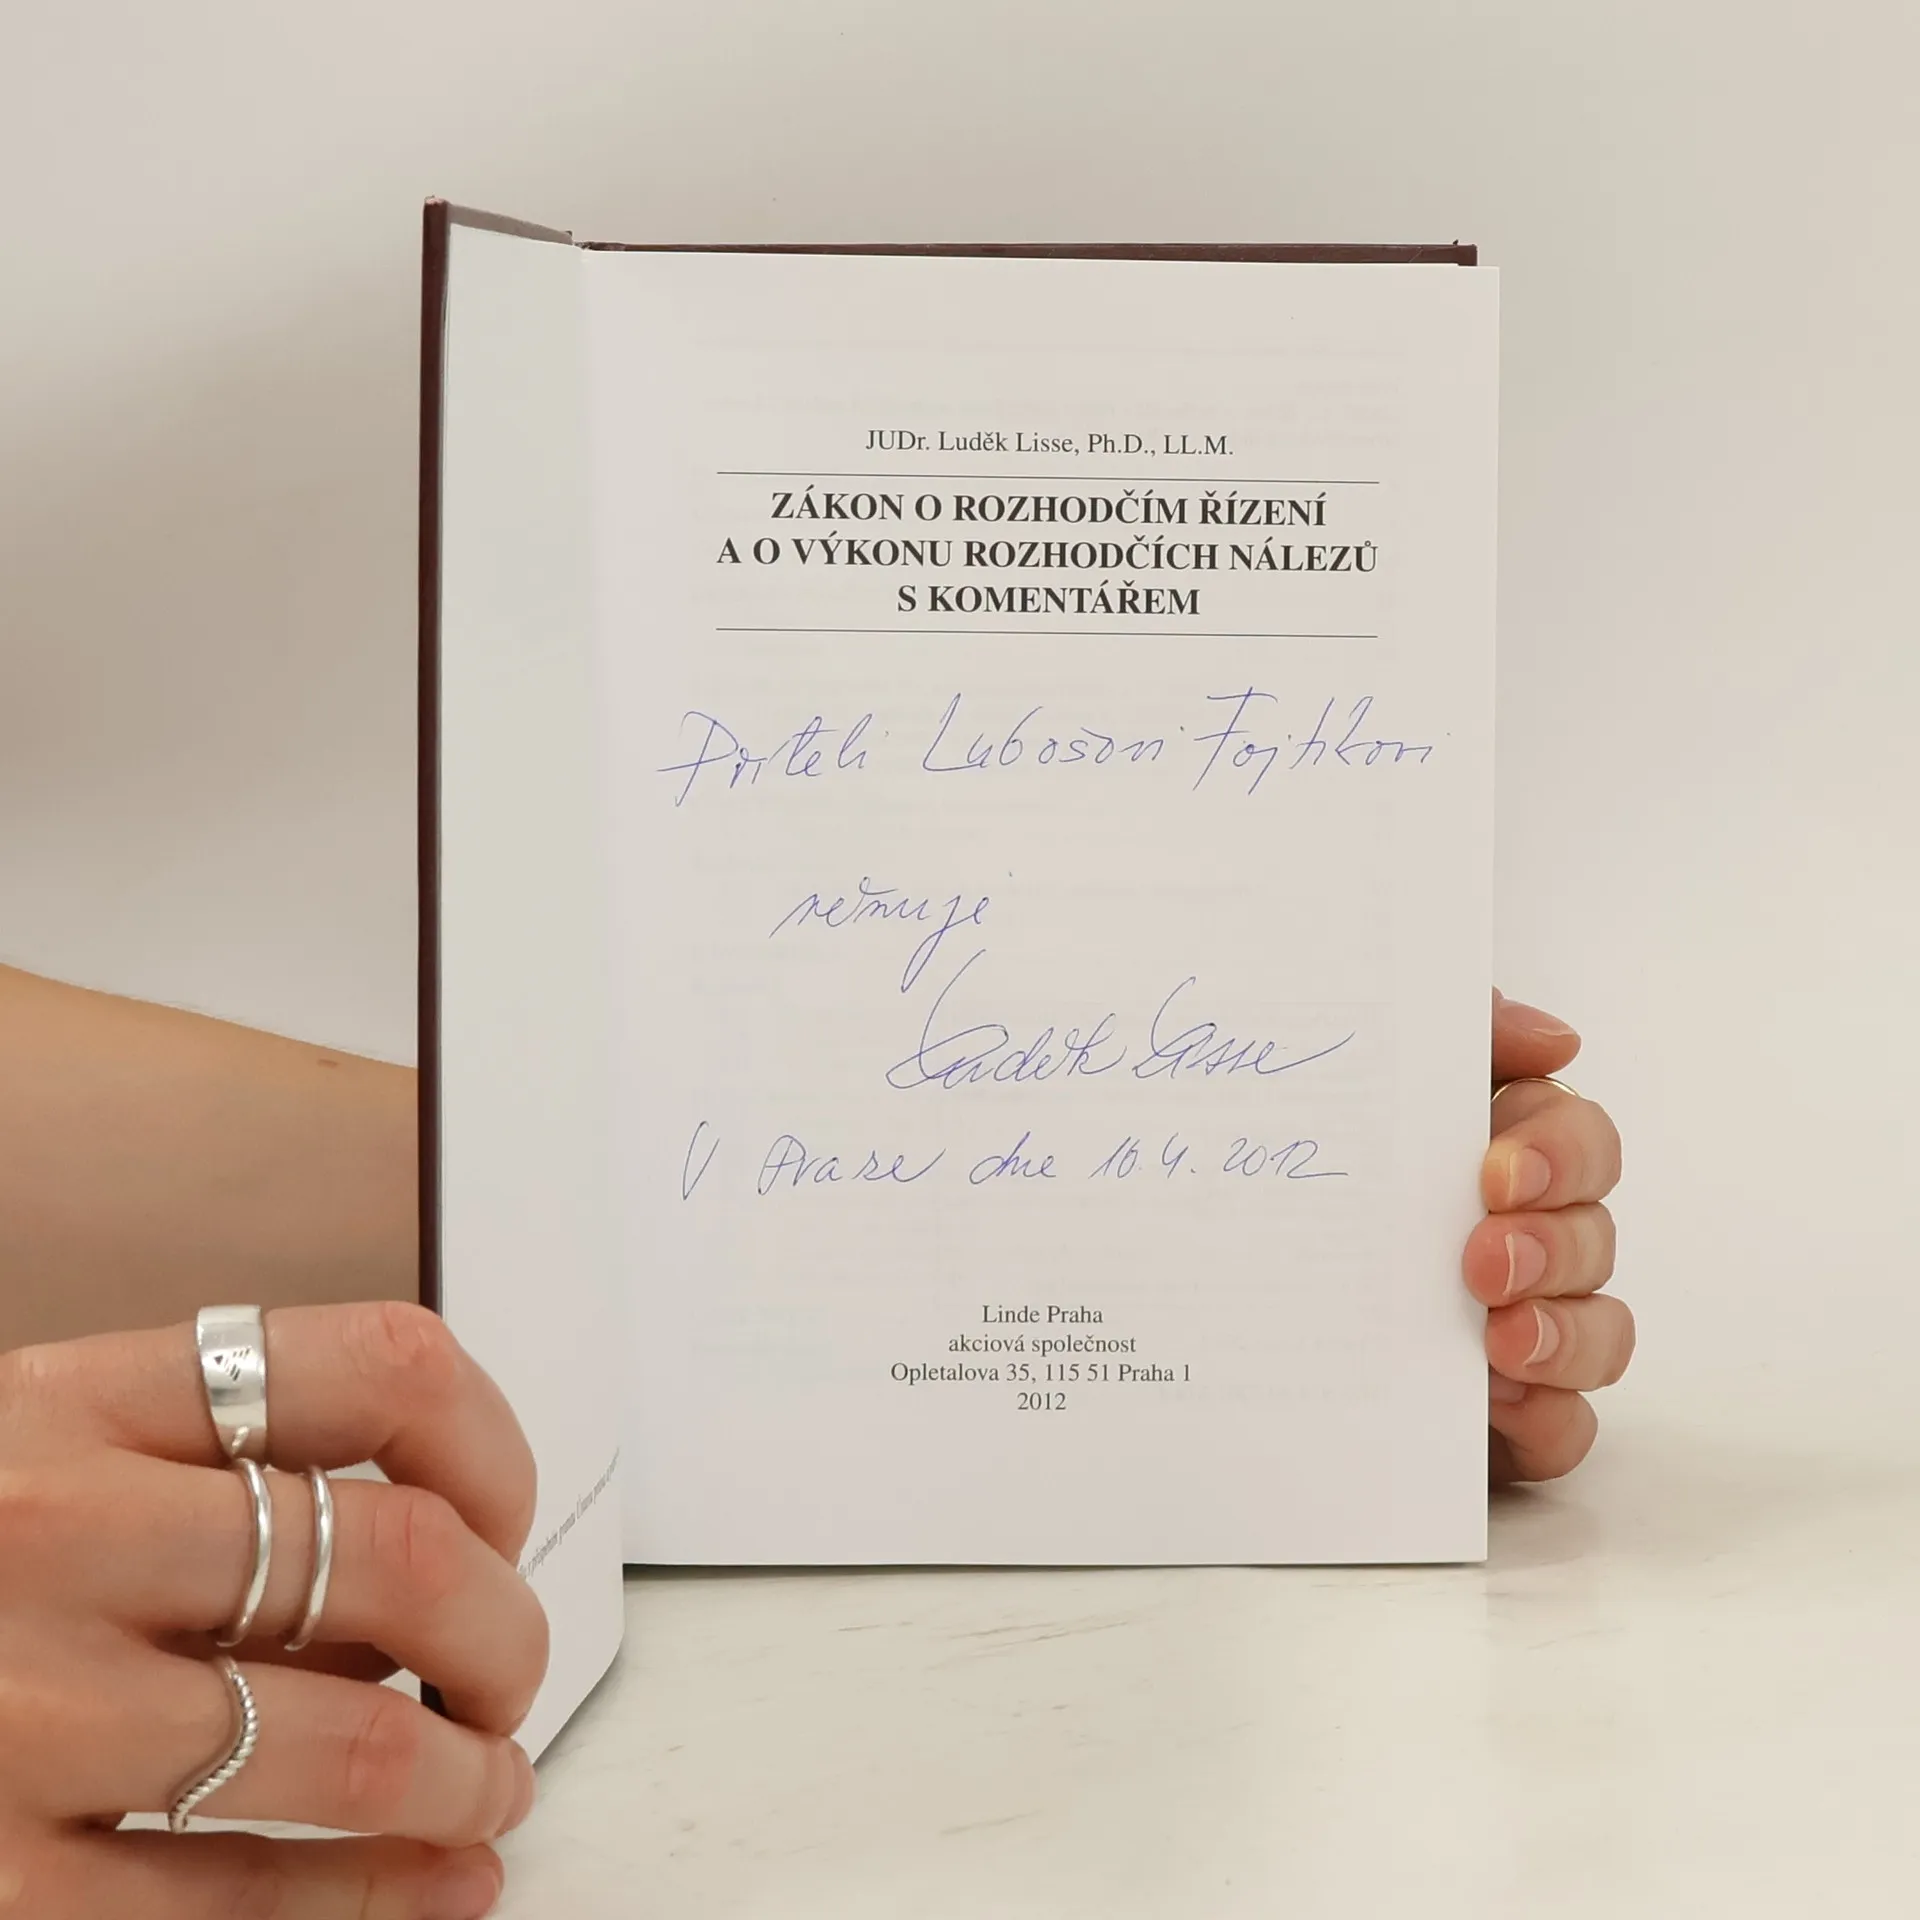 JUDr. Luděk Lisse, Ph.D., LL.M.
ZÁKON O ROZHODČÍM ŘÍZENÍ
A O VÝKONU ROZHODČÍCH NÁLEZŮ
S KOMENTÁŘEM
Příteli Lubošovi Fojtíkovi
věnuje
Luděk Lisse
V Praze dne 16.4.2012
Linde Praha
akciová společnost
Opletalova 35, 115 51 Praha 1
2012